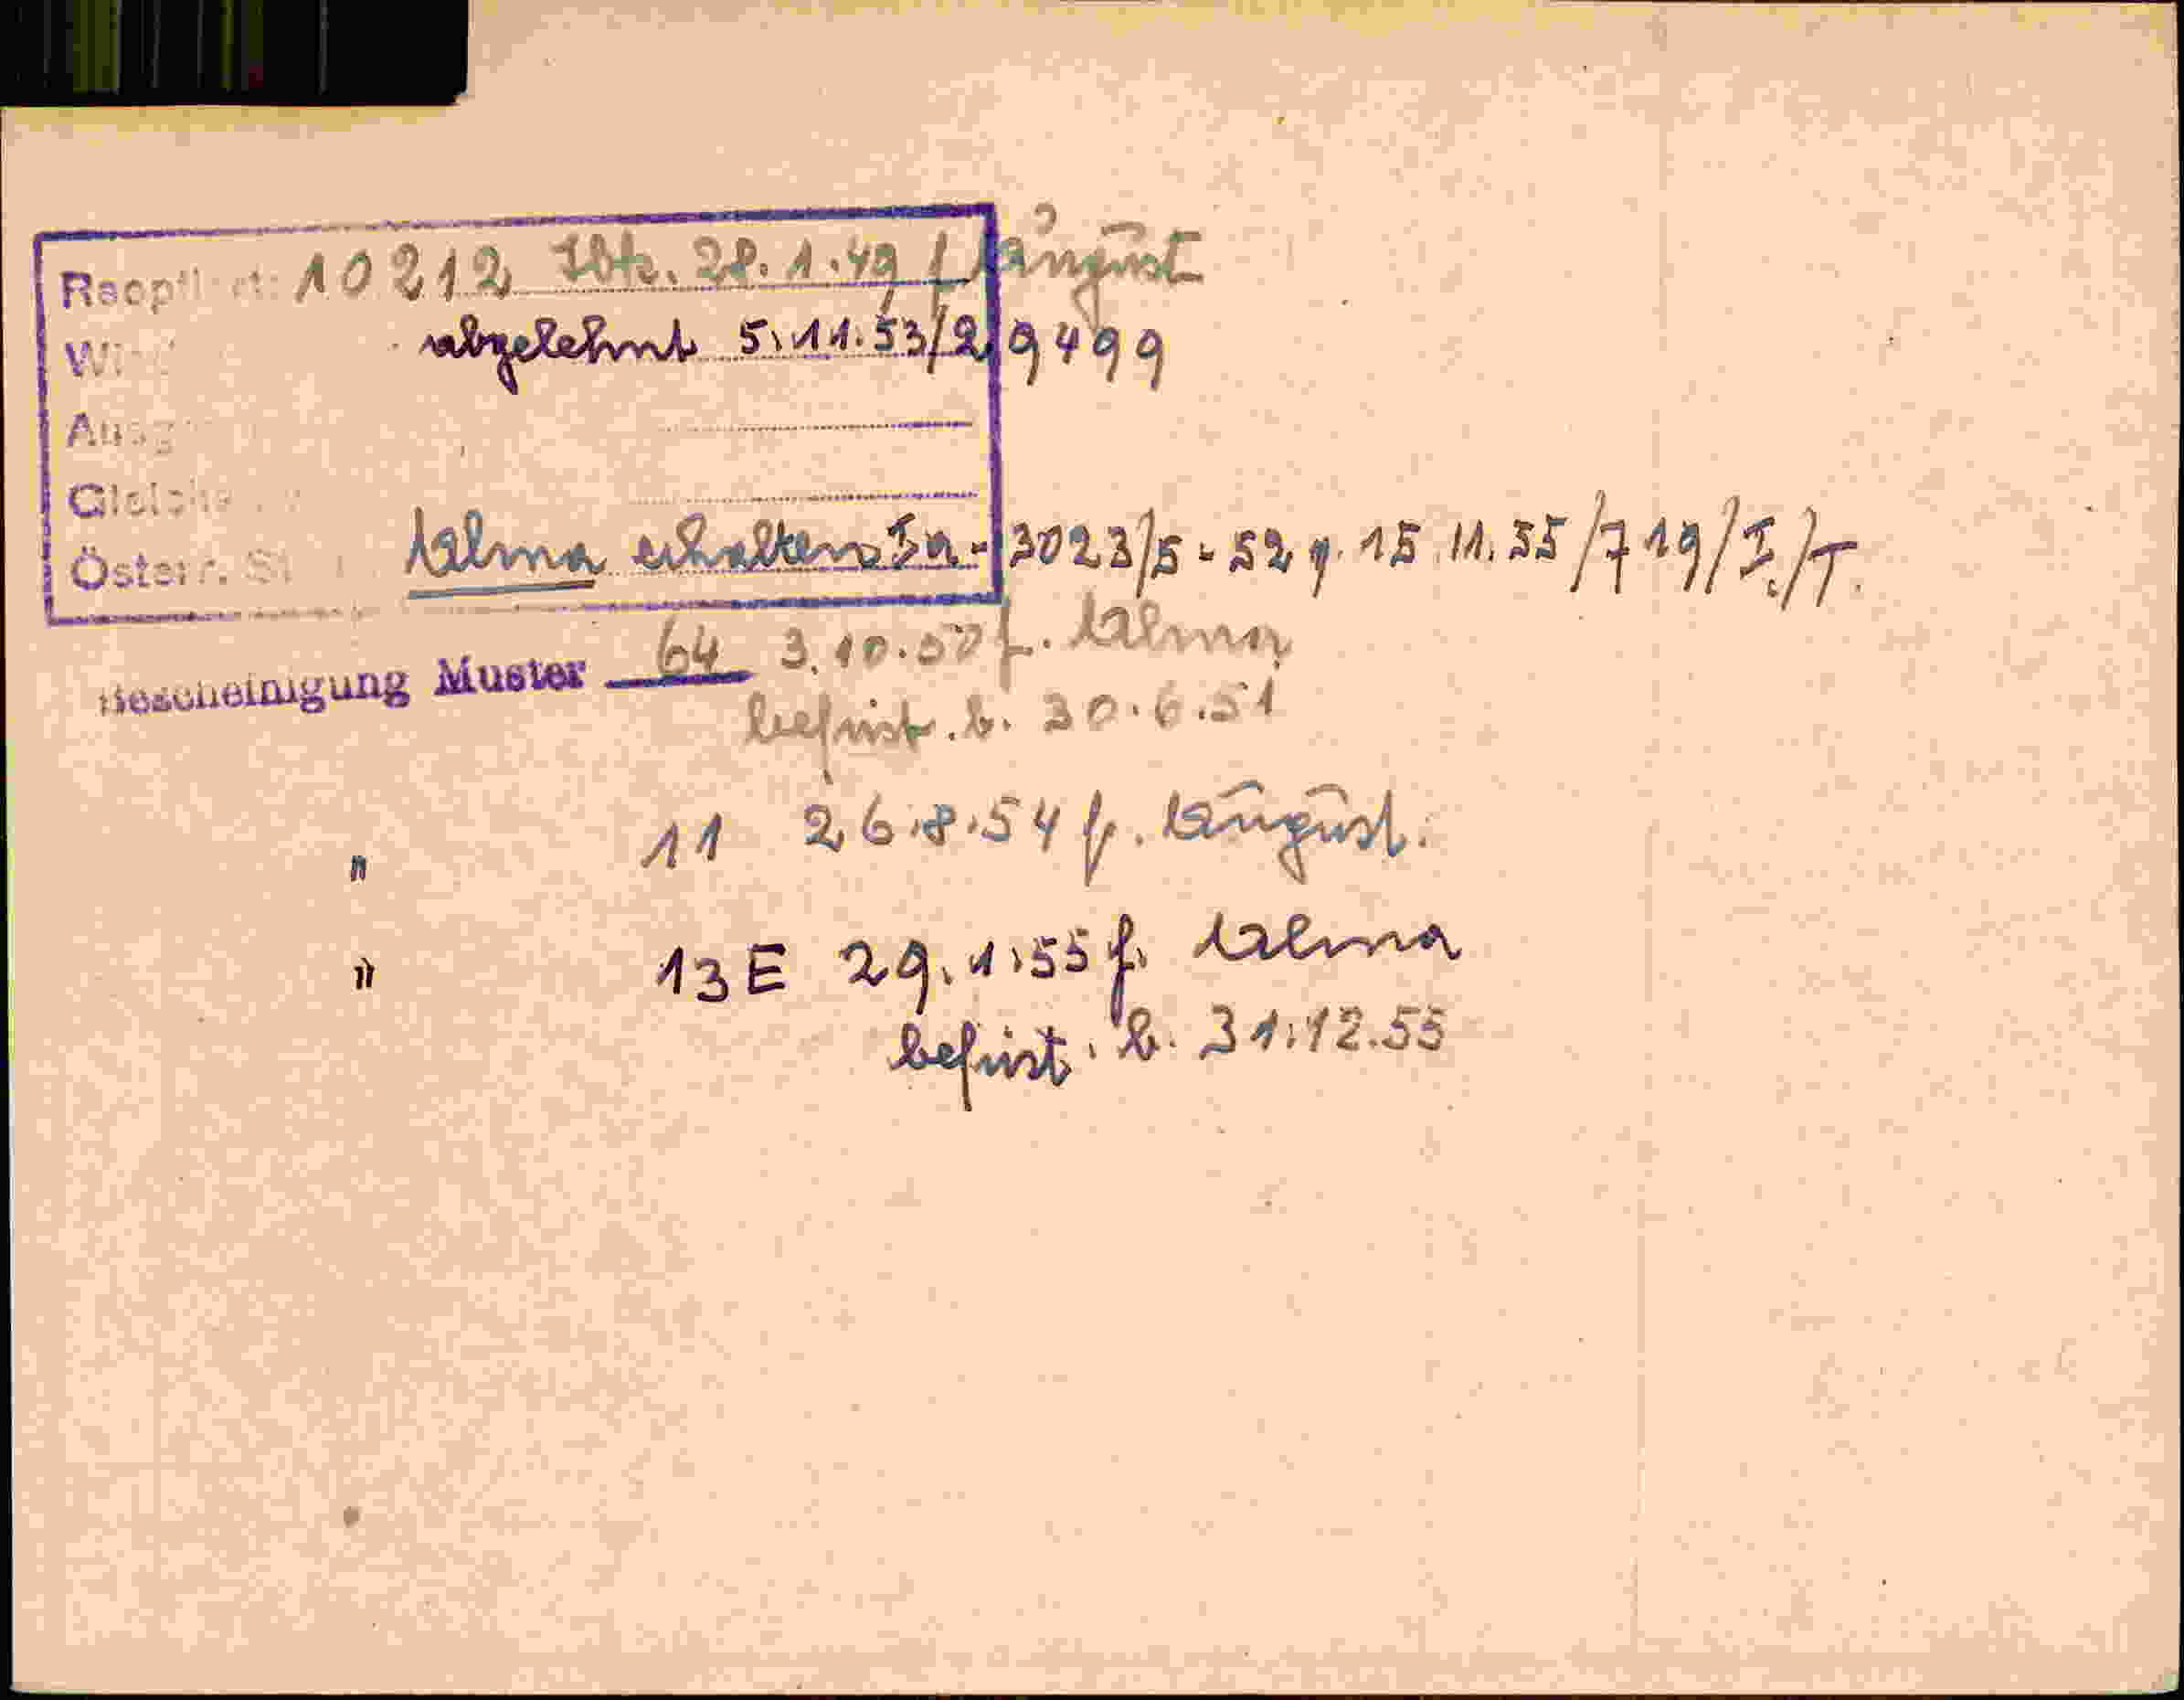 10212 28.1.49 f August
abgelehnt 5.11.53/2 9499
Österr. Alma erhalten Ia-3023/5-52 v. 15.11.55/719/I./T.
Bescheinigung Muster 64 3.10.50 f. Alma
befrist. b. 30.6.51
" 11 26.8.54 f. August.
" 13E 29.1.55 f. Alma
befrist. b. 31.12.55